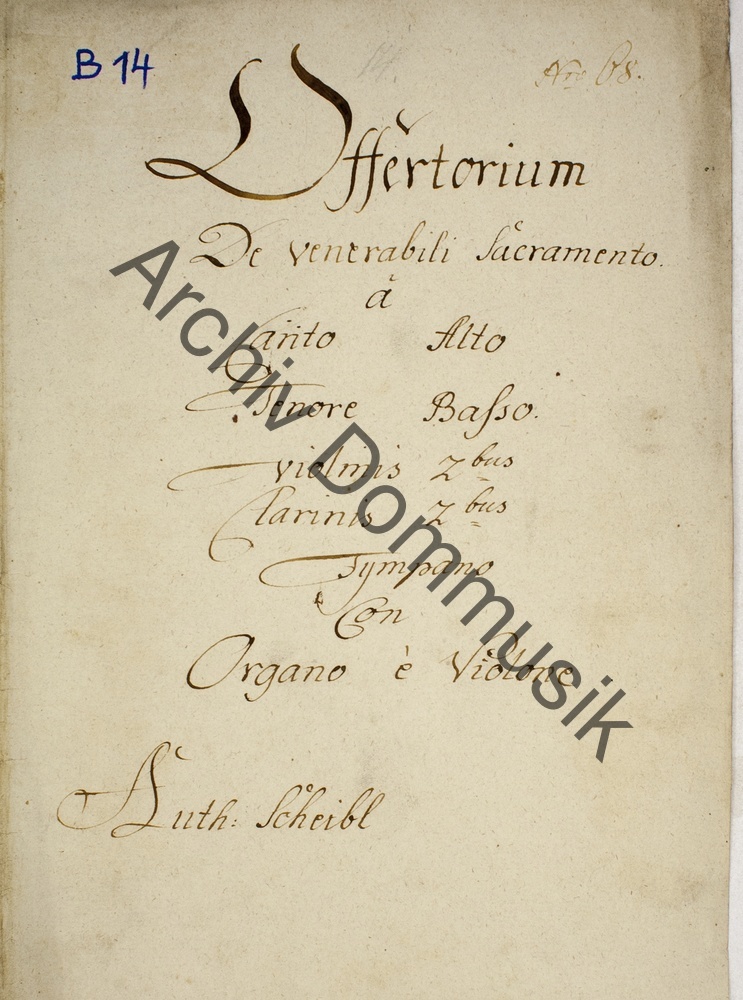 B 14 14. Nro 68.
Offertorium
De venerabili Sacramento.
à
Canto Alto
Tenore Basso.
Violinis 2bus
Clarinis 2bus
Tympano
Con
Organo è Violone
Auth: Scheibl
Archiv Dommusik